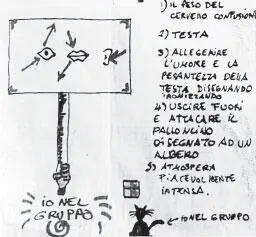 1) IL PESO DEL
CERVELLO CONFUSIONE
2) TESTA
3) ALLEGERIRE
L'UMORE E LA
PESANTEZZA DELLA
TESTA DISEGNANDO
IRONIZZANDO
4) USCIRE FUORI
E ATTACARE IL
PALLONCINO
DISEGNATO AD UN
ALBERO
5) ATMOSFERA
PIACEVOLMENTE
INTENSA.
IO NEL
GRUPPO
IO NEL GRUPPO